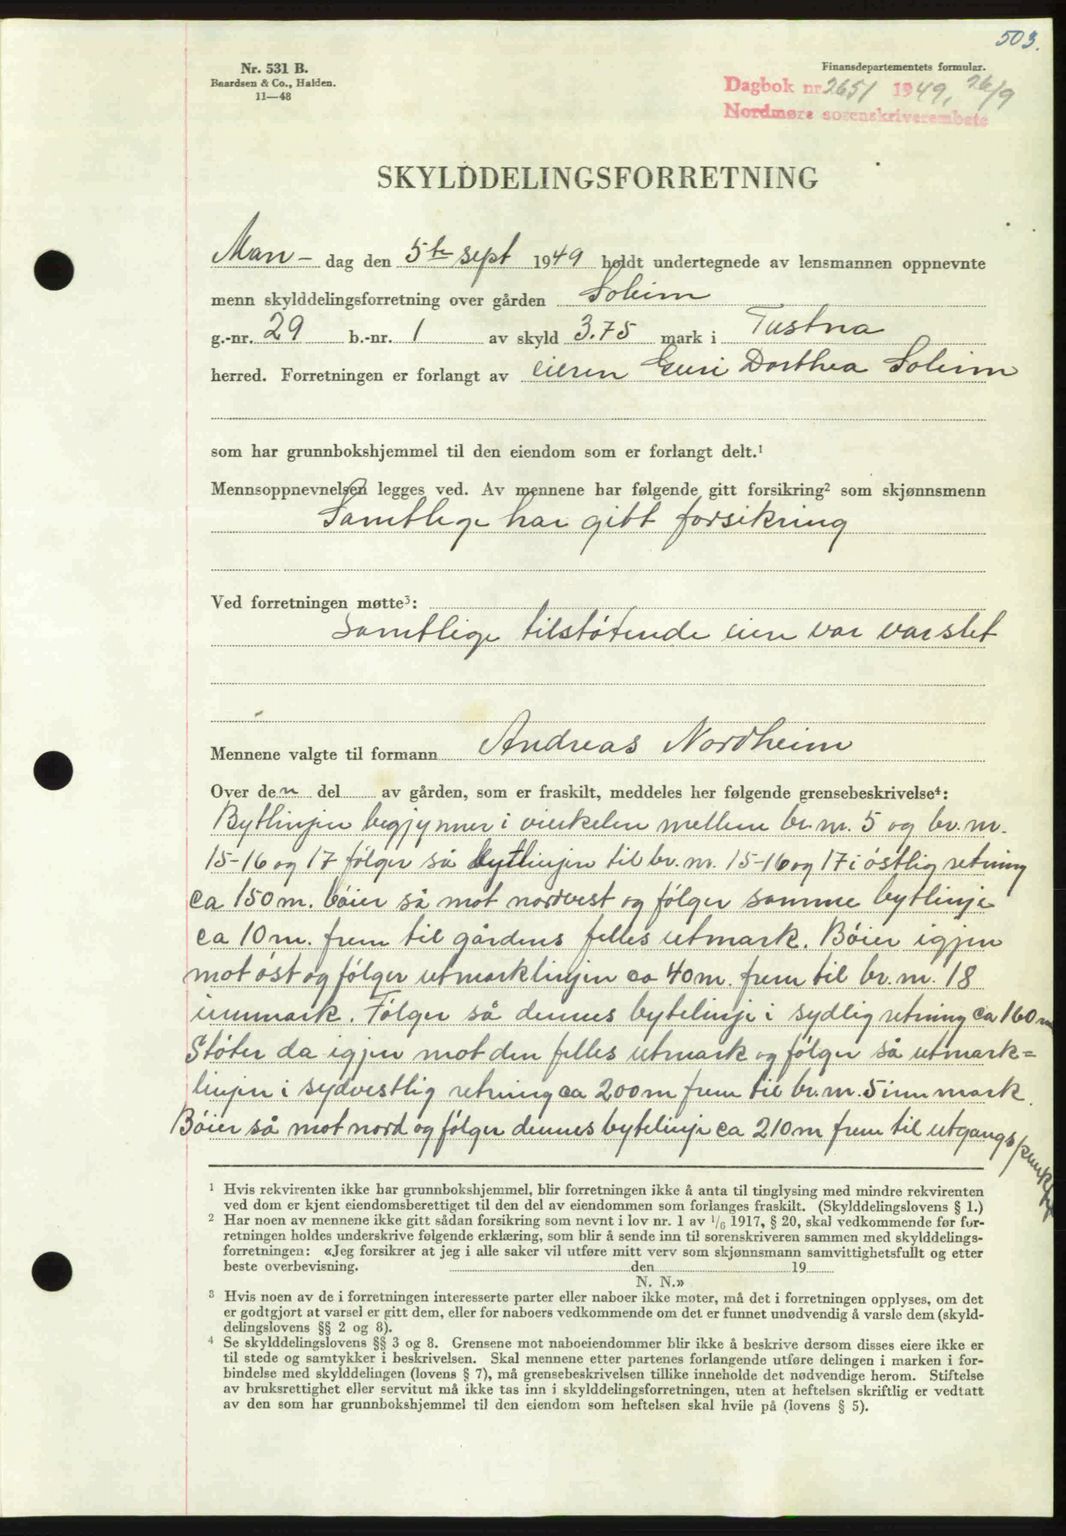 503.
Nr. 531 B.
Baardsen & Co., Halden.
11—48
Finansdepartementets formular.
Dagbok nr. 2651 1949, 26/9
Nordmøre sorenskriverembete
SKYLDDELINGSFORRETNING
Man- dag den 5te sept 1949 holdt undertegnede av lensmannen oppnevnte
menn skylddelingsforretning over gården Soleim
g.-nr. 29 b.-nr. 1 av skyld 3.75 mark i Tustna
herred. Forretningen er forlangt av eieren Guri Dorthea Soleim
som har grunnbokshjemmel til den eiendom som er forlangt delt.¹
Mennsoppnevnelsen legges ved. Av mennene har følgende gitt forsikring² som skjønnsmenn
Samtlige har gitt forsikring
Ved forretningen møtte³:
Samtlige tilstøtende eiere var varslet
Mennene valgte til formann Andreas Nordheim
Over den del av gården, som er fraskilt, meddeles her følgende grensebeskrivelse⁴:
Bytlinjen begjynner i vinkelen mellem br.nr. 5 og br.nr.
15-16 og 17 følger så bytlinjen til br.nr. 15-16 og 17 i østlig retning
ca 150 m. bøier så mot nordvest og følger samme bytlinje
ca 10 m. frem til gårdens felles utmark. Bøier igjen
mot øst og følger utmarklinjen ca 40 m. frem til br.nr. 18
innmark. Følger så dennes bytelinje i sydlig retning ca 160 m
Støter da igjen mot den felles utmark og følger så utmark=
linjen i sydvestlig retning ca 200 m frem til br.nr. 5 innmark.
Bøier så mot nord og følger dennes bytelinje ca 210 m frem til utgangspunktet
¹ Hvis rekvirenten ikke har grunnbokshjemmel, blir forretningen ikke å anta til tinglysing med mindre rekvirenten
ved dom er kjent eiendomsberettiget til den del av eiendommen som forlanges fraskilt. (Skylddelingslovens § 1.)
² Har noen av mennene ikke gitt sådan forsikring som nevnt i lov nr. 1 av ¹/₆ 1917, § 20, skal vedkommende før for-
retningen holdes underskrive følgende erklæring, som blir å sende inn til sorenskriveren sammen med skylddelings-
forretningen: «Jeg forsikrer at jeg i alle saker vil utføre mitt verv som skjønnsmann samvittighetsfullt og etter
beste overbevisning. den 19
N. N.»
³ Hvis noen av de i forretningen interesserte parter eller naboer ikke møter, må det i forretningen opplyses, om det
er godtgjort at varsel er gitt dem, eller for naboers vedkommende om det er funnet unødvendig å varsle dem (skyld-
delingslovens §§ 2 og 8).
⁴ Se skylddelingslovens §§ 3 og 8. Grensene mot naboeiendommer blir ikke å beskrive dersom disses eiere ikke er
til stede og samtykker i beskrivelsen. Skal mennene etter partenes forlangende utføre delingen i marken i for-
bindelse med skylddelingen (lovens § 7), må grensebeskrivelsen tillike inneholde det nødvendige herom. Stiftelse
av bruksrettighet eller servitut må ikke tas inn i skylddelingsforretningen, uten at heftelsen skriftlig er vedtatt
av den som har grunnbokshjemmel til den eiendom som heftelsen skal hvile på (lovens § 5).